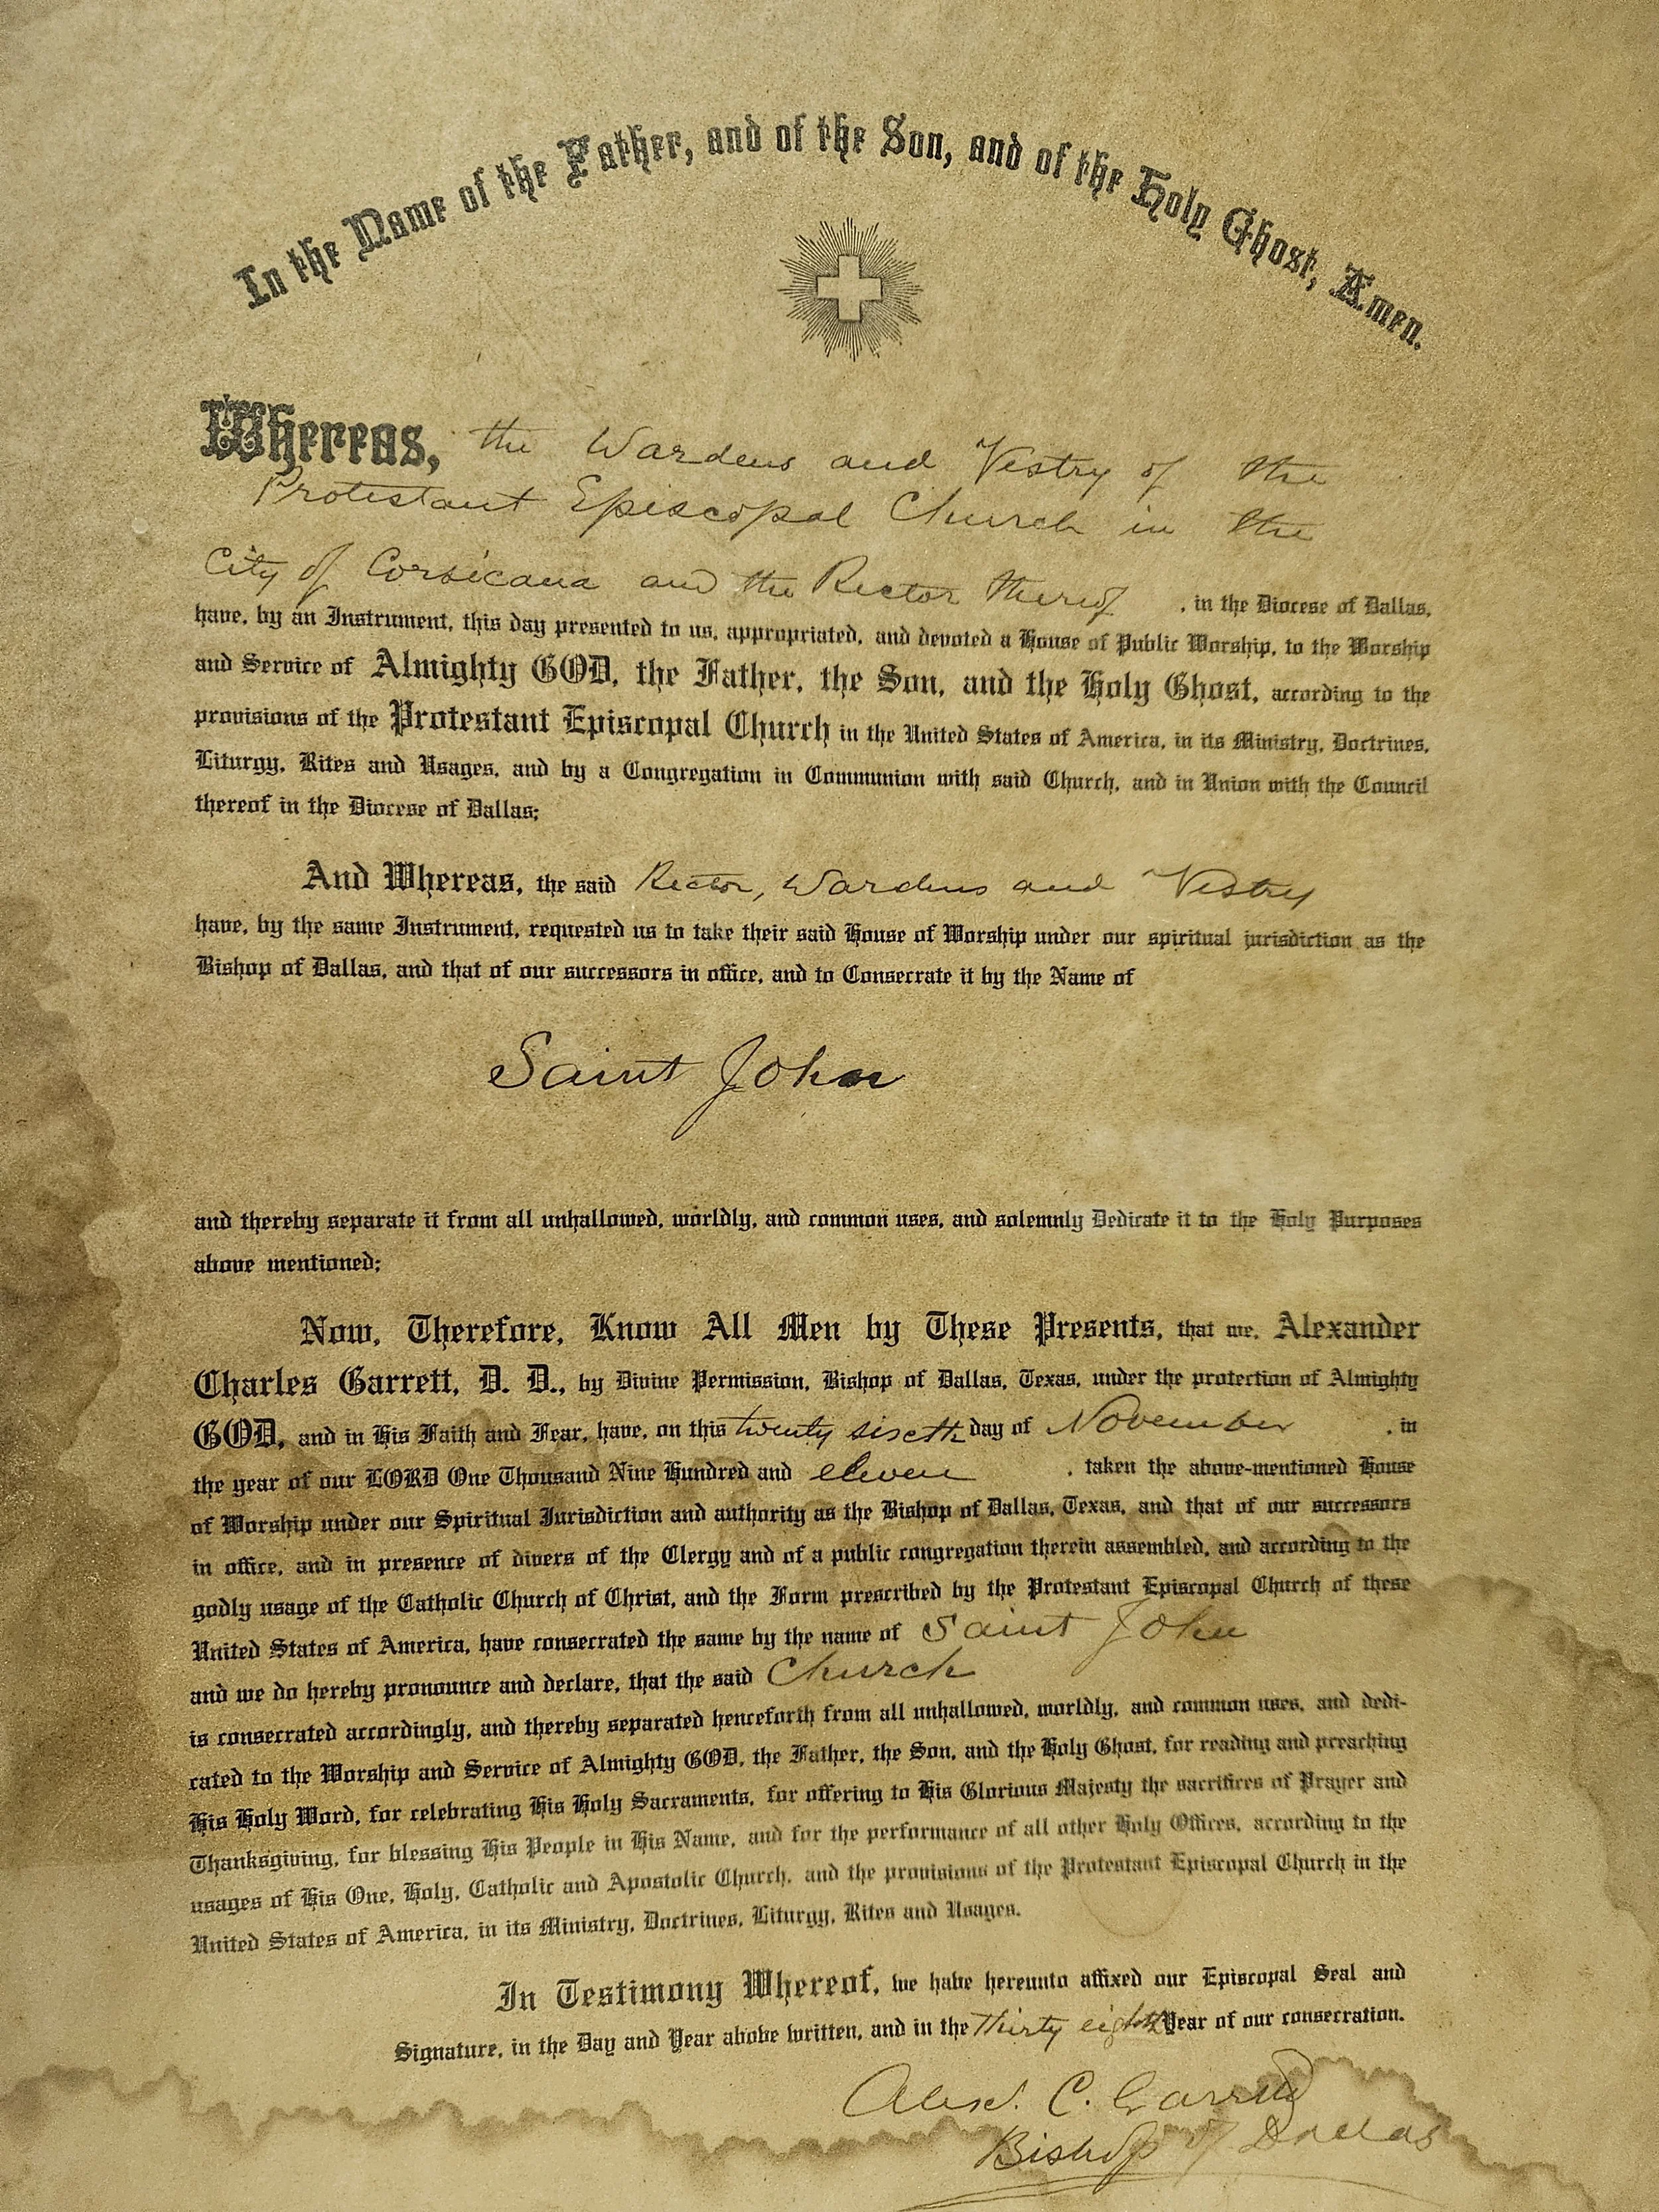 In the Name of the Father, and of the Son, and of the Holy Ghost, Amen.
Whereas, the Wardens and Vestry of the
Protestant Episcopal Church in the
City of Corsicana and the Rector thereof, in the Diocese of Dallas,
have, by an Instrument, this day presented to us, appropriated, and devoted a House of Public Worship, to the Worship
and Service of Almighty GOD, the Father, the Son, and the Holy Ghost, according to the
provisions of the Protestant Episcopal Church in the United States of America, in its Ministry, Doctrines,
Liturgy, Rites and Usages, and by a Congregation in Communion with said Church, and in Union with the Council
thereof in the Diocese of Dallas;
And Whereas, the said Rector, Wardens and Vestry
have, by the same Instrument, requested us to take their said House of Worship under our spiritual jurisdiction as the
Bishop of Dallas, and that of our successors in office, and to Consecrate it by the Name of
Saint John
and thereby separate it from all unhallowed, worldly, and common uses, and solemnly Dedicate it to the Holy Purposes
above mentioned;
Now, Therefore, Know All Men by These Presents, that we, Alexander
Charles Garrett, D. D., by Divine Permission, Bishop of Dallas, Texas, under the protection of Almighty
GOD, and in His Faith and Fear, have, on this twenty sixth day of November, in
the year of our LORD One Thousand Nine Hundred and eleven, taken the above-mentioned House
of Worship under our Spiritual Jurisdiction and authority as the Bishop of Dallas, Texas, and that of our successors
in office, and in presence of divers of the Clergy and of a public congregation therein assembled, and according to the
godly usage of the Catholic Church of Christ, and the Form prescribed by the Protestant Episcopal Church of these
United States of America, have consecrated the same by the name of Saint John
and we do hereby pronounce and declare, that the said Church
is consecrated accordingly, and thereby separated henceforth from all unhallowed, worldly, and common uses, and dedi-
cated to the Worship and Service of Almighty GOD, the Father, the Son, and the Holy Ghost, for reading and preaching
His Holy Word, for celebrating His Holy Sacraments, for offering to His Glorious Majesty the sacrifices of Prayer and
Thanksgiving, for blessing His People in His Name, and for the performance of all other Holy Offices, according to the
usages of His One, Holy, Catholic and Apostolic Church, and the provisions of the Protestant Episcopal Church in the
United States of America, in its Ministry, Doctrines, Liturgy, Rites and Usages.
In Testimony Whereof, we have hereunto affixed our Episcopal Seal and
Signature, in the Day and Year above written, and in the thirty eighth Year of our consecration.
Alex. C. Garrett
Bishop of Dallas